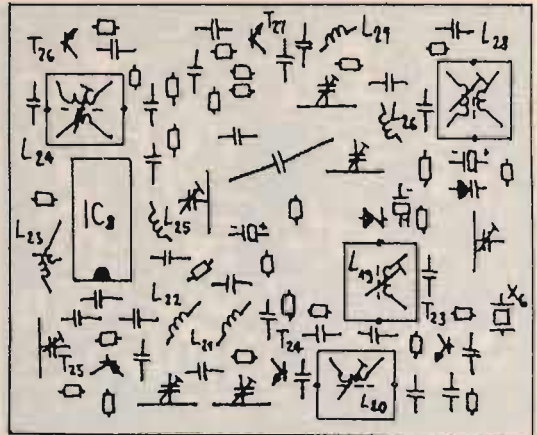 T26
T27
L29
L28
L24
L26
IC8
L25
L23
L19
L22
T23
X6
L21
T24
T25
L20